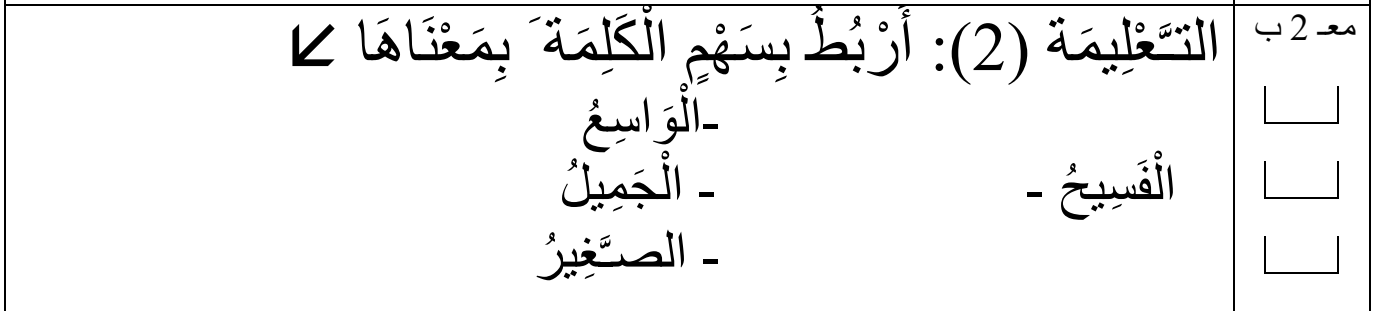 معـ 2 ب
التَّعْلِيمَة (2): أَرْبُطُ بِسَهْمٍ الْكَلِمَةَ بِمَعْنَاهَا ↙
-الْوَاسِعُ
الْفَسِيحُ - - الْجَمِيلُ
- الصَّغِيرُ